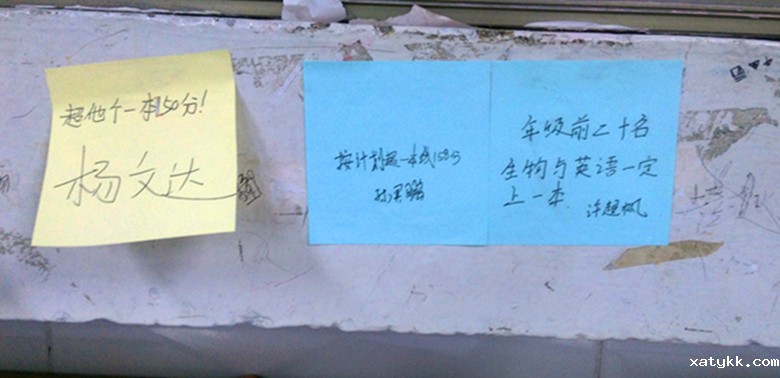 超他个一本50分!
杨文达
按计划超一本线150分
年级前二十名
生物与英语一定
上一本.
许超枫
xatykk.com